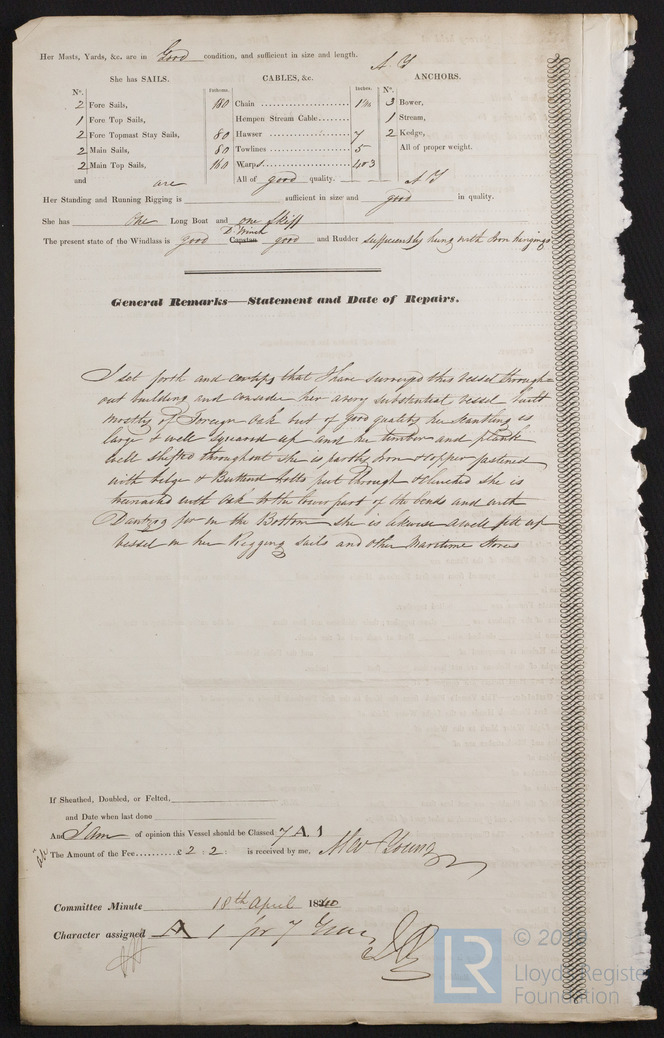 Her Masts, Yards, &c. are in Good condition, and sufficient in size and length.
She has SAILS. CABLES, &c. ANCHORS.
N°. Fathoms. Inches. N°.
2 Fore Sails, 180 Chain 3 Bower,
1 Fore Top Sails, Hempen Stream Cable 1 Stream,
2 Fore Topmast Stay Sails, 80 Hawser 7 2 Kedge,
2 Main Sails, 80 Towlines 5 All of proper weight.
2 Main Top Sails, 160 Warps 4 & 3
and are All of good quality.
Her Standing and Running Rigging is sufficient in size and good in quality.
She has One Long Boat and one Skiff
The present state of the Windlass is good Capstan D. Winch good and Rudder sufficiently hung with Iron hingings
General Remarks—Statement and Date of Repairs.
I set forth and certify that I have surveyed this vessel through=
out building and consider her a very substantial vessel built
mostly of Foreign Oak but of good quality her scantling is
large & well squared up and her timber and plank
well shifted throughout she is partly Iron & Copper fastened
with bilge & Buttend bolts put through & clenched she is
treenaild with oak to the lower part of the bends and with
Dantzig fir in the Bottom she is likewise a well fitt up
vessel in her Rigging sails and other Maritime Stores
If Sheathed, Doubled, or Felted,
and Date when last done
And I am of opinion this Vessel should be Classed 7 A. 1
The Amount of the Fee £ 2 : 2 : is received by me, Mw Young
Committee Minute 18th April 1840
Character assigned A 1 for 7 Years
LR
Lloyd's Register
Foundation